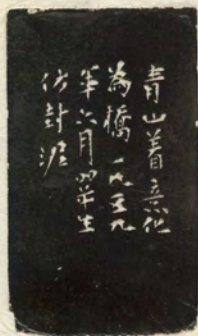 青山着意化
為橋 一九五九
年六月翠生
仿封泥